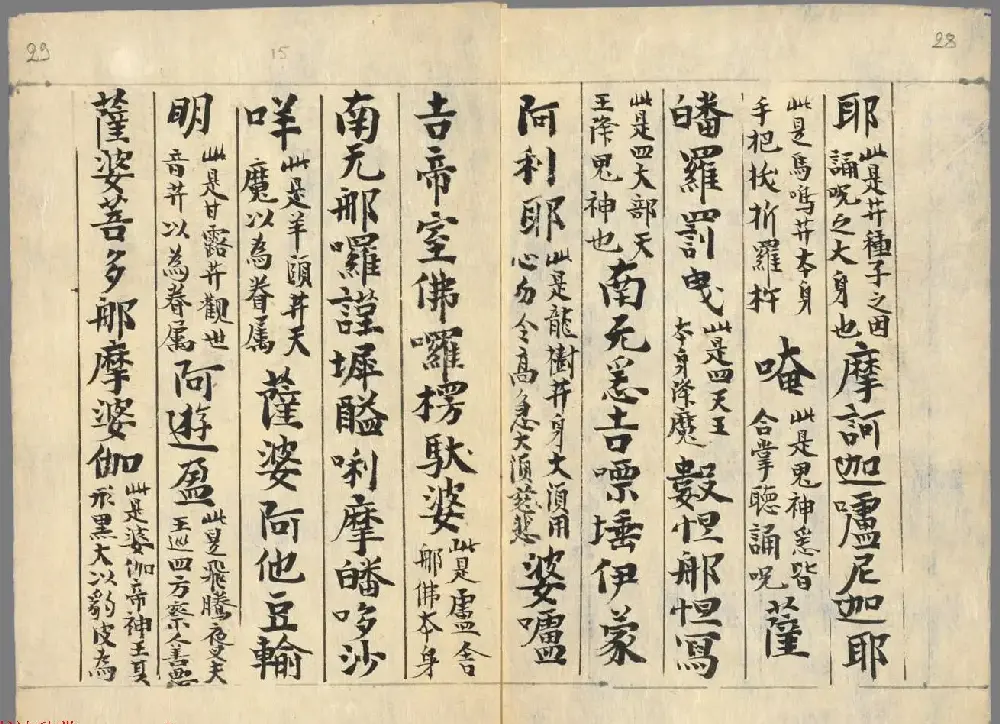 28
耶此是𦬇種子之因誦呪之大身也摩訶迦嚧尼迦耶
此是馬鳴𦬇本身手把拔折羅杵唵此是鬼神悉皆合掌聽誦呪薩
皤羅罰曳此是四天王本身降魔數怛那怛寫
此是四大部天王降鬼神也南无悉吉嘌埵伊蒙
阿利耶此是龍樹𦬇身大須用心勿令高急大須慈悲婆嚧
29
15
吉帝室佛囉楞馱婆此是盧舍那佛本身
南无那囉謹墀醯唎摩皤哆沙
咩此是羊頭𦬇天魔以為眷属薩婆阿他豆輸
明此是甘露𦬇觀世音𦬇以為眷属阿遊盈此是飛騰夜叉天王巡四方察善惡
薩婆菩多那摩婆伽此是婆伽帝神王其形黑大以豹皮為